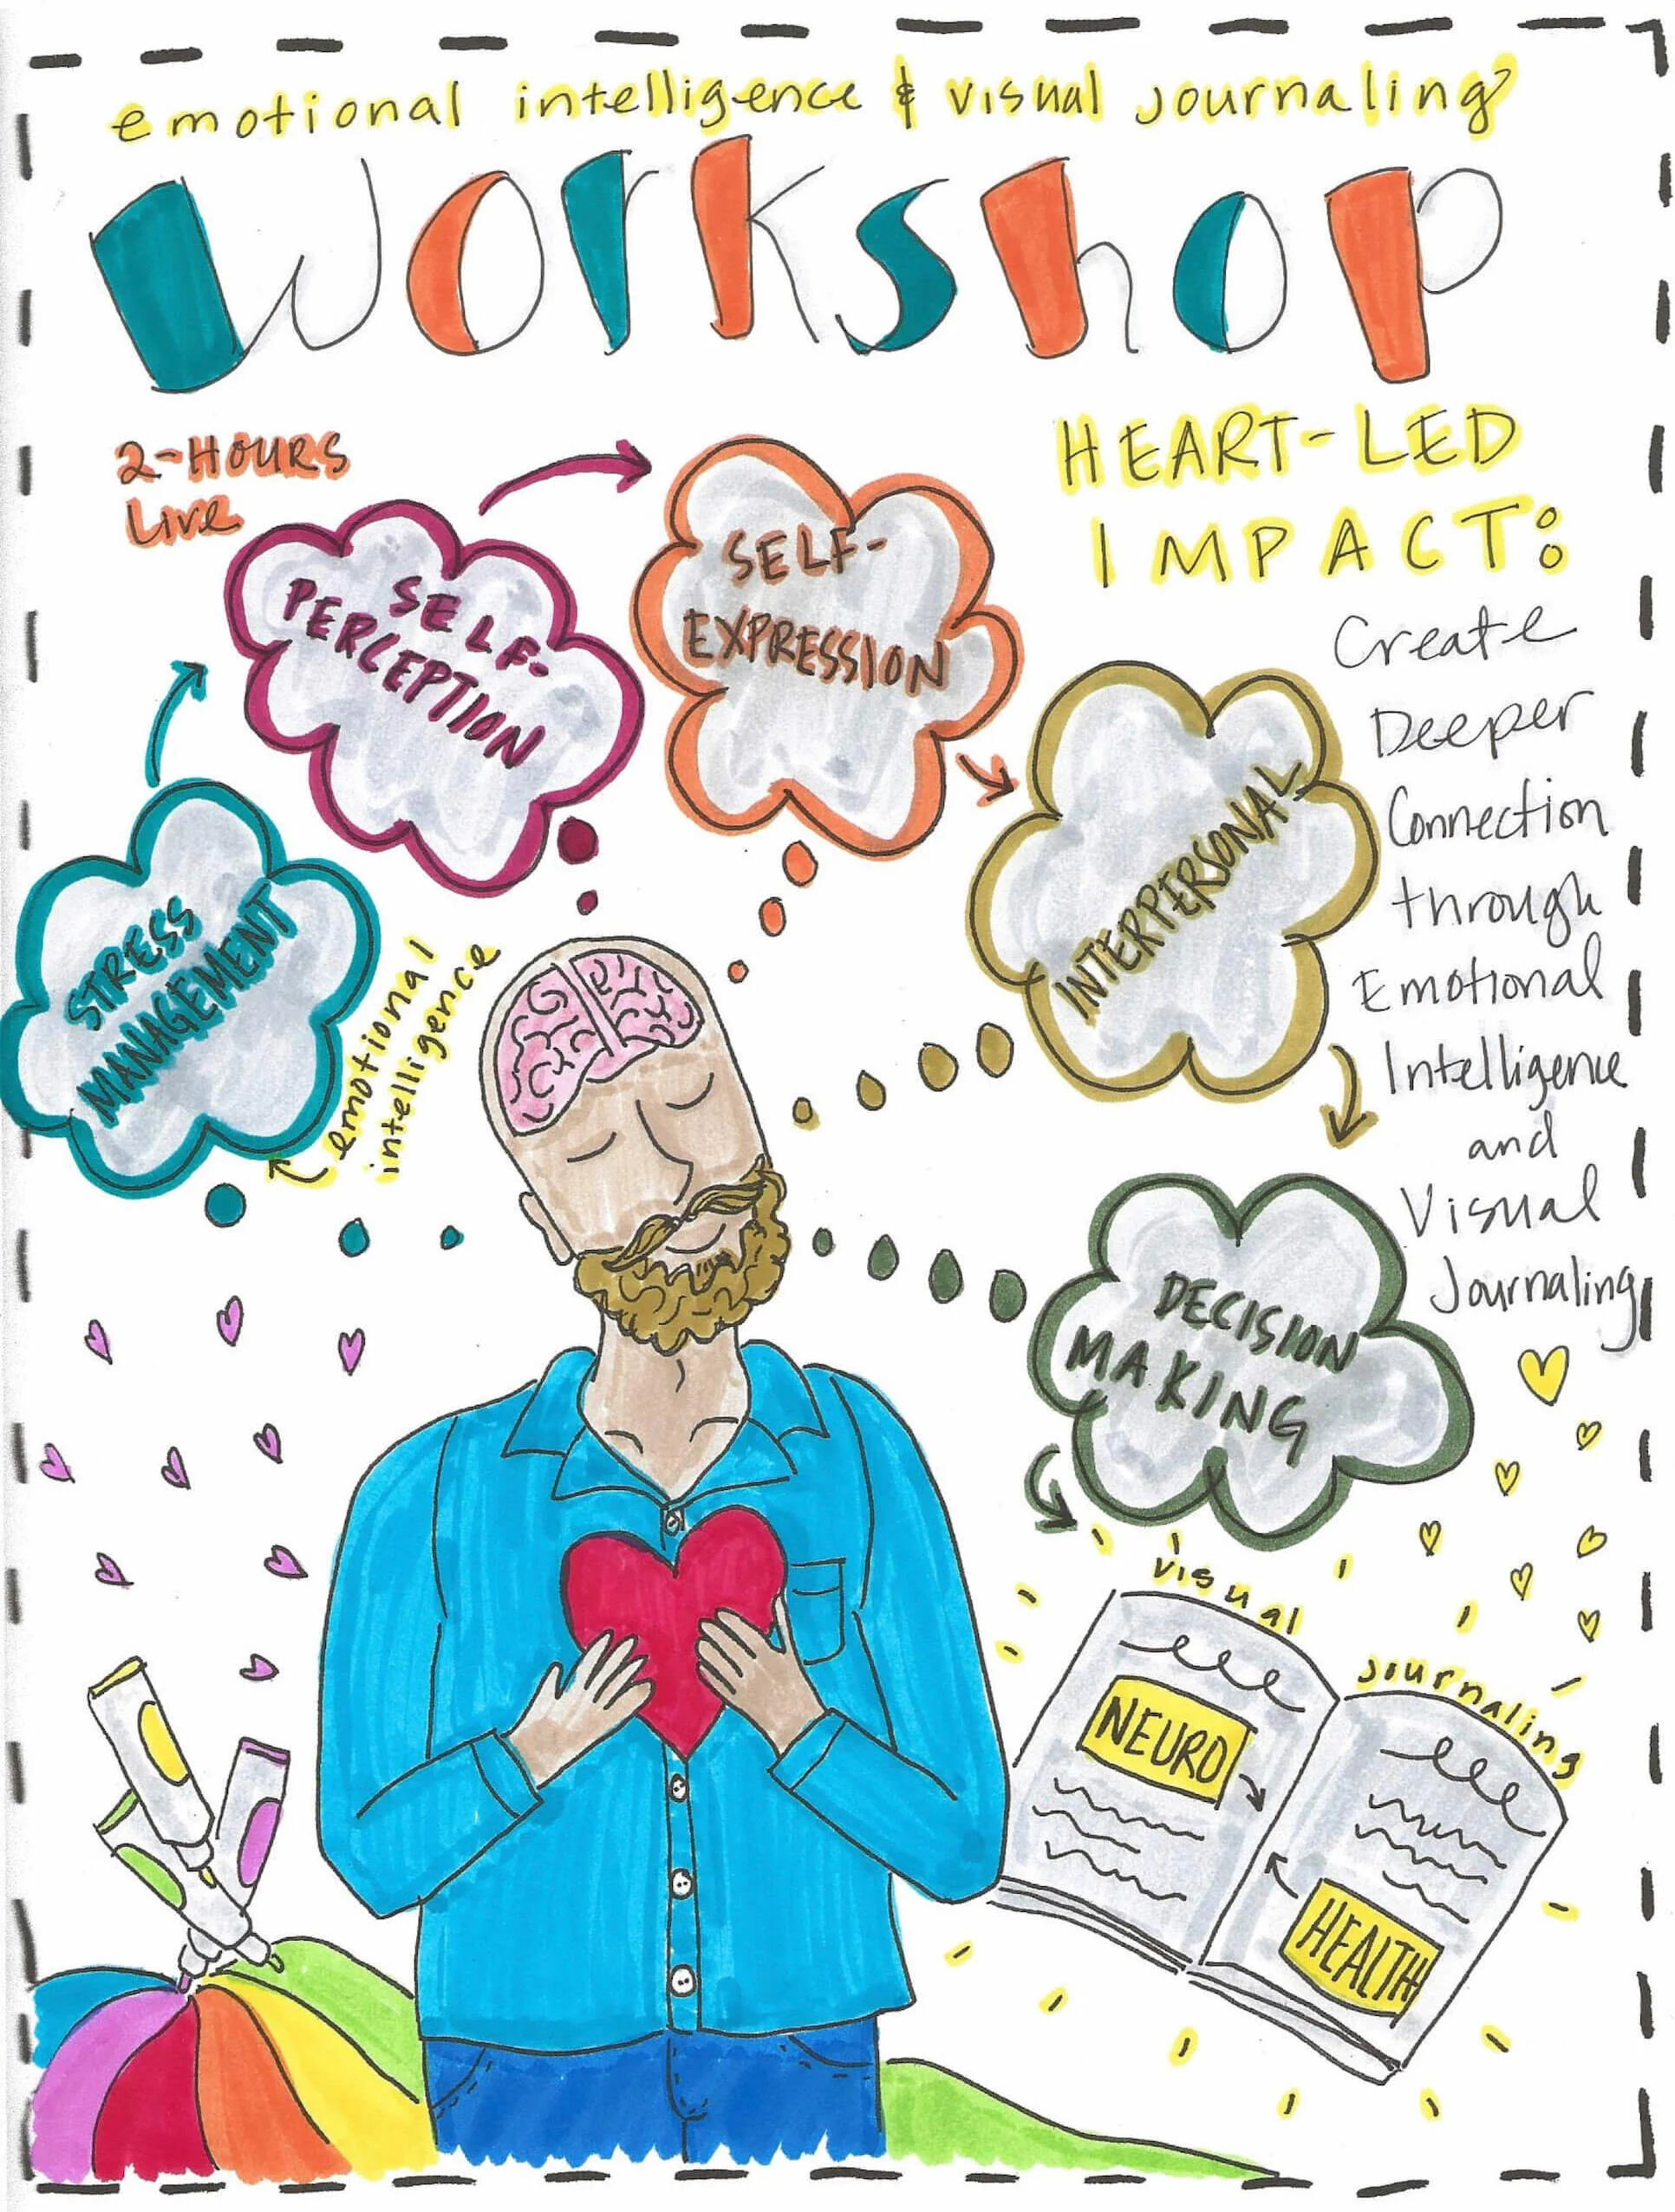 emotional intelligence & visual journaling
workshop
2-HOURS
Live
HEART-LED
IMPACT:
Create
Deeper
Connection
through
Emotional
Intelligence
and
Visual
Journaling
STRESS
MANAGEMENT
emotional
intelligence
SELF-
PERCEPTION
SELF-
EXPRESSION
INTERPERSONAL
DECISION
MAKING
visual
journaling
NEURO
HEALTH